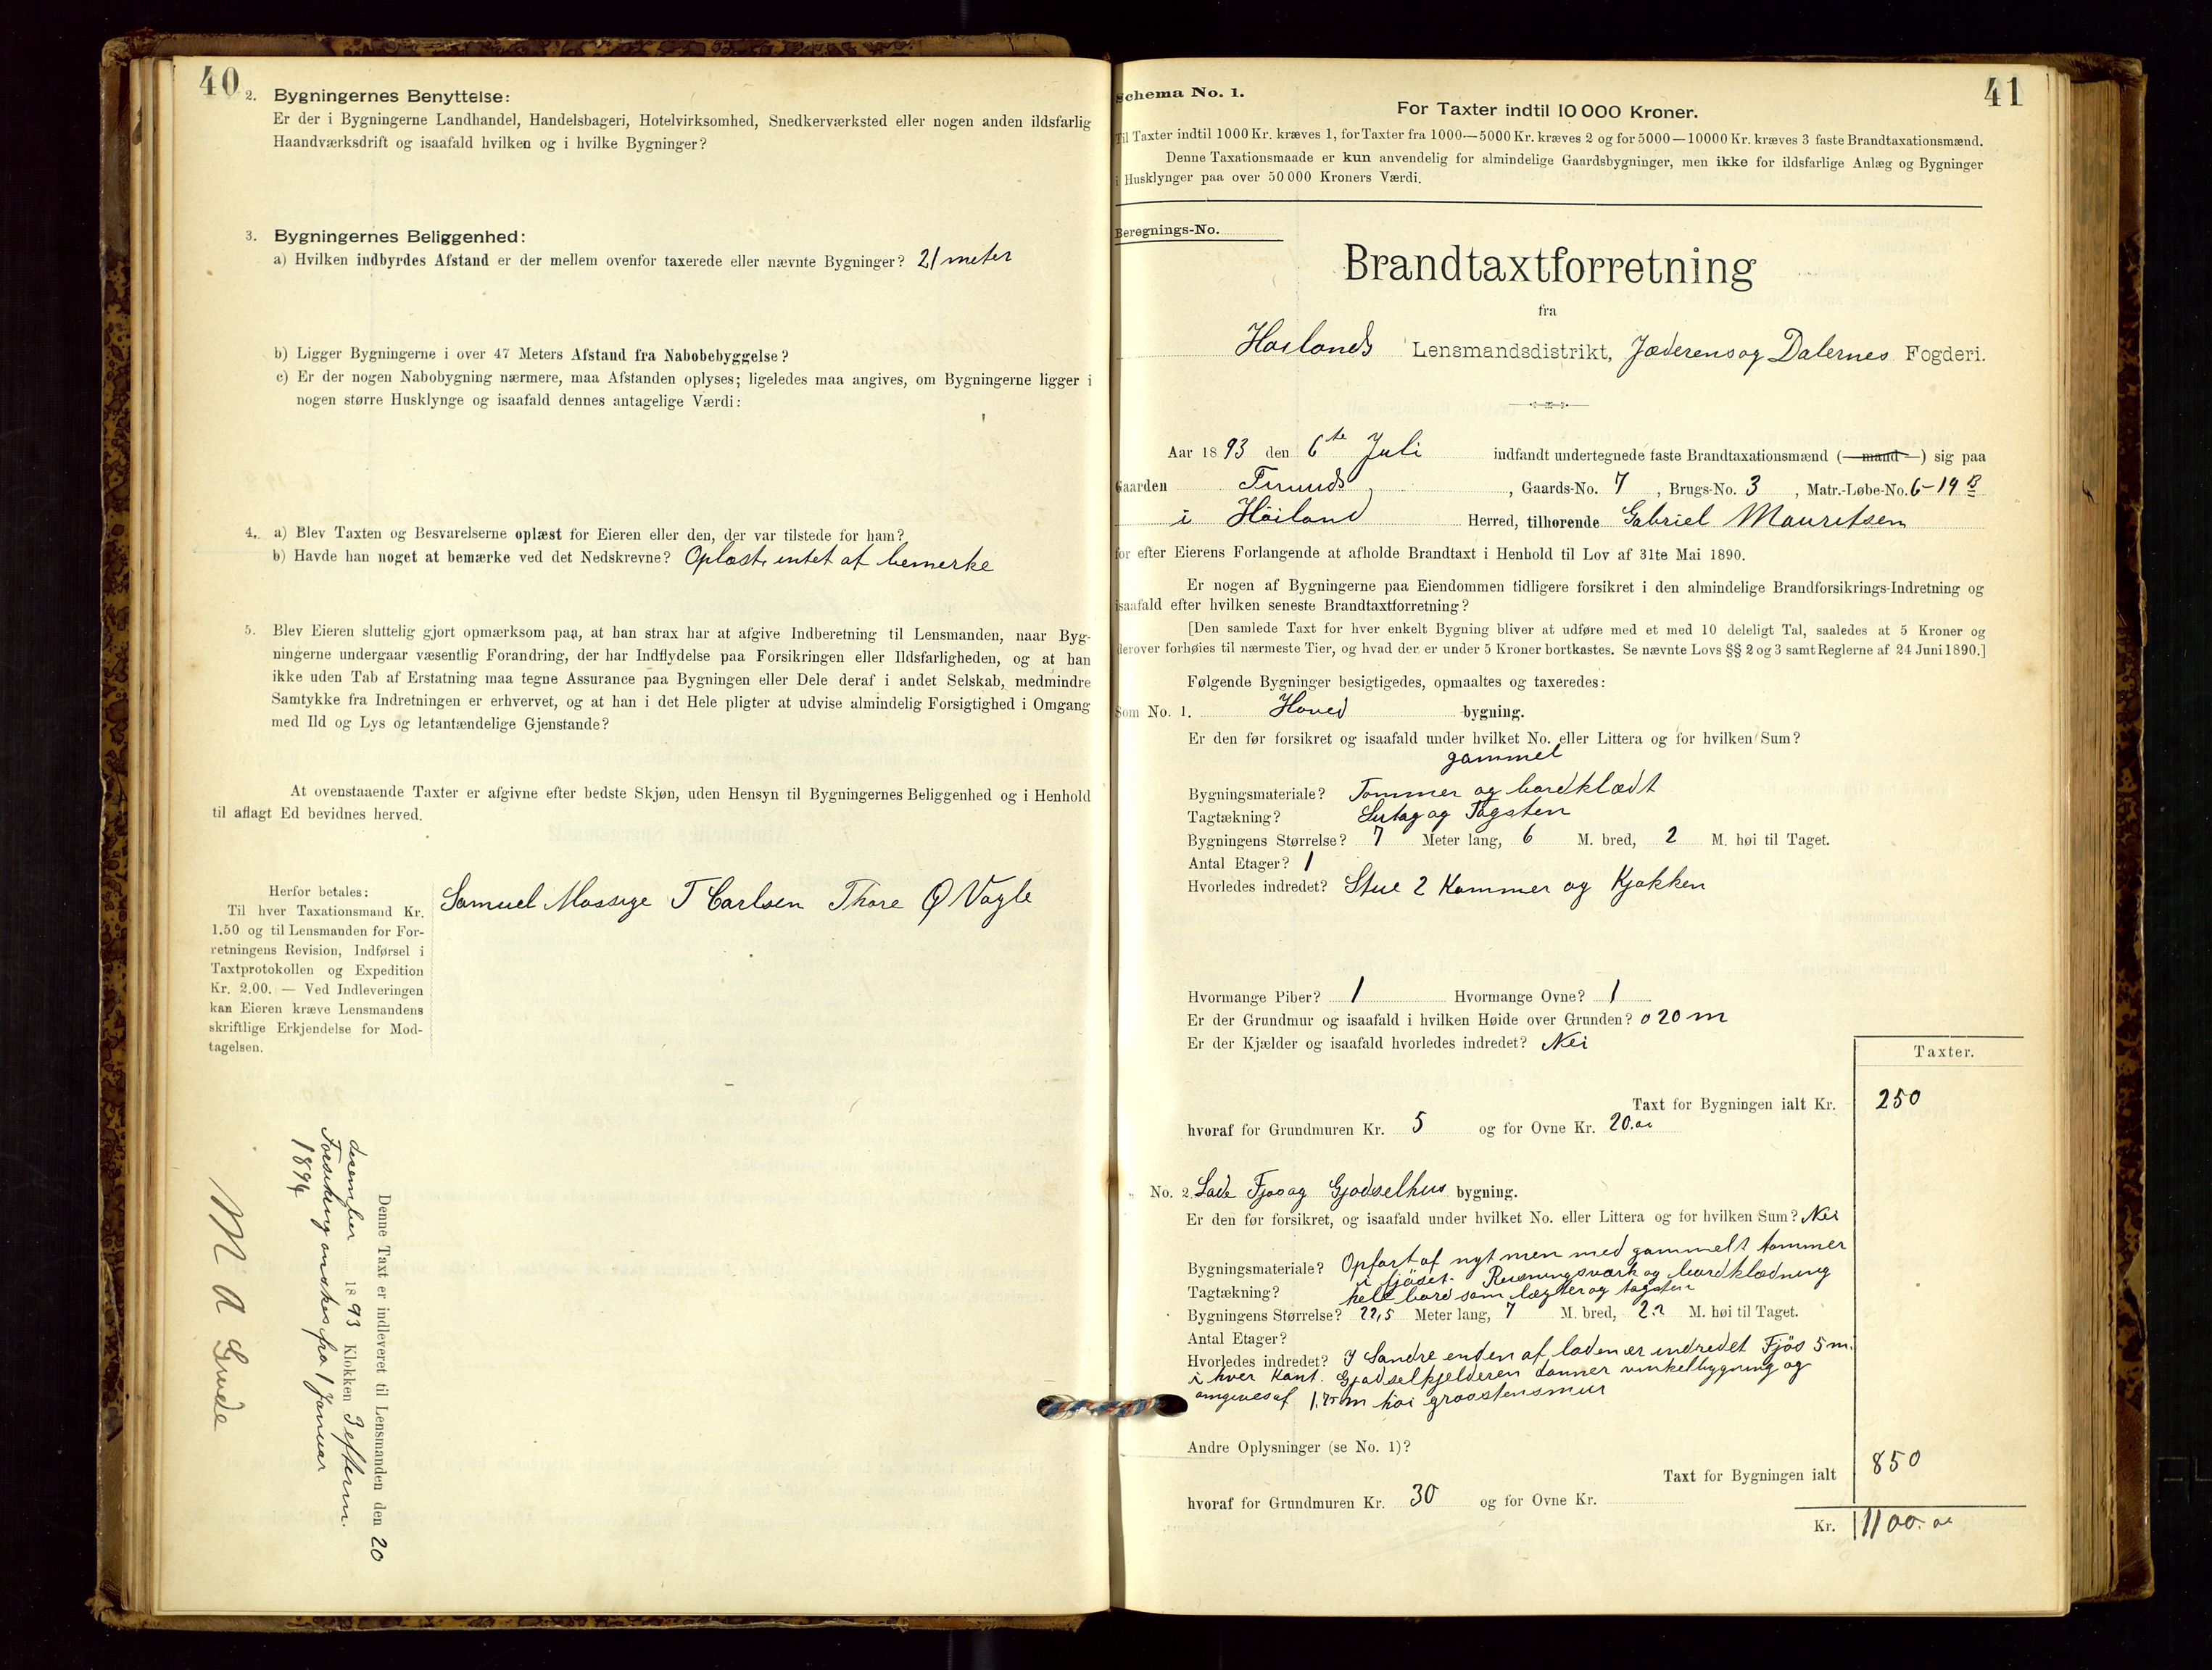 40
2. Bygningernes Benyttelse:
Er der i Bygningerne Landhandel, Handelsbageri, Hotelvirksomhed, Snedkerværksted eller nogen anden ildsfarlig
Haandværksdrift og isaafald hvilken og i hvilke Bygninger?
3. Bygningernes Beliggenhed:
a) Hvilken indbyrdes Afstand er der mellem ovenfor taxerede eller nævnte Bygninger? 21 meter
b) Ligger Bygningerne i over 47 Meters Afstand fra Nabobebyggelse?
c) Er der nogen Nabobygning nærmere, maa Afstanden oplyses; ligeledes maa angives, om Bygningerne ligger i
nogen større Husklynge og isaafald dennes antagelige Værdi:
4. a) Blev Taxten og Besvarelserne oplæst for Eieren eller den, der var tilstede for ham?
b) Havde han noget at bemærke ved det Nedskrevne? Oplæst, intet at bemerke
5. Blev Eieren sluttelig gjort opmærksom paa, at han strax har at afgive Indberetning til Lensmanden, naar Byg-
ningerne undergaar væsentlig Forandring, der har Indflydelse paa Forsikringen eller Ildsfarligheden, og at han
ikke uden Tab af Erstatning maa tegne Assurance paa Bygningen eller Dele deraf i andet Selskab, medmindre
Samtykke fra Indretningen er erhvervet, og at han i det Hele pligter at udvise almindelig Forsigtighed i Omgang
med Ild og Lys og letantændelige Gjenstande?
At ovenstaaende Taxter er afgivne efter bedste Skjøn, uden Hensyn til Bygningernes Beliggenhed og i Henhold
til aflagt Ed bevidnes herved.
Samuel Mossige T Carlsen Thore O Vagle
Herfor betales:
Til hver Taxationsmand Kr.
1.50 og til Lensmanden for For-
retningens Revision, Indførsel i
Taxtprotokollen og Expedition
Kr. 2.00. — Ved Indleveringen
kan Eieren kræve Lensmandens
skriftlige Erkjendelse for Mod-
tagelsen.
Denne Taxt er indleveret til Lensmanden den 20
desember 1893 Klokken 3 efterm.
Forsikring ønskes fra 1 Januar
1894
M A Grude
41
Schema No. 1.
For Taxter indtil 10 000 Kroner.
Til Taxter indtil 1000 Kr. kræves 1, for Taxter fra 1000—5000 Kr. kræves 2 og for 5000—10000 Kr. kræves 3 faste Brandtaxationsmænd.
Denne Taxationsmaade er kun anvendelig for almindelige Gaardsbygninger, men ikke for ildsfarlige Anlæg og Bygninger
i Husklynger paa over 50 000 Kroners Værdi.
Beregnings-No.
Brandtaxtforretning
fra
Høilands Lensmandsdistrikt, Jæderens og Dalernes Fogderi.
Aar 1893 den 6te Juli indfandt undertegnede faste Brandtaxationsmænd (mand) sig paa
Gaarden , Gaards-No. 7, Brugs-No. 3, Matr.-Løbe-No. 6-19 B
i Høiland Herred, tilhørende Gabriel Mauritsen
for efter Eierens Forlangende at afholde Brandtaxt i Henhold til Lov af 31te Mai 1890.
Er nogen af Bygningerne paa Eiendommen tidligere forsikret i den almindelige Brandforsikrings-Indretning og
isaafald efter hvilken seneste Brandtaxtforretning?
[Den samlede Taxt for hver enkelt Bygning bliver at udføre med et med 10 deleligt Tal, saaledes at 5 Kroner og
derover forhøies til nærmeste Tier, og hvad der er under 5 Kroner bortkastes. Se nævnte Lovs §§ 2 og 3 samt Reglerne af 24 Juni 1890.]
Følgende Bygninger besigtigedes, opmaaltes og taxeredes:
Som No. 1. Hoved bygning.
Er den før forsikret og isaafald under hvilket No. eller Littera og for hvilken Sum?
gammel
Bygningsmateriale? Tømmer og bordklædt
Tagtækning? Sutag og Tagsten
Bygningens Størrelse? 7 Meter lang, 6 M. bred, 2 M. høi til Taget.
Antal Etager? 1
Hvorledes indredet? Stue 2 Kammer og Kjøkken
Hvormange Piber? 1 Hvormange Ovne? 1
Er der Grundmur og isaafald i hvilken Høide over Grunden? 0 20 m
Er der Kjælder og isaafald hvorledes indredet? Nei
Taxter.
Taxt for Bygningen ialt Kr. 250
hvoraf for Grundmuren Kr. 5 og for Ovne Kr. 20.00
" No. 2. Lade Fjøs og Gjødselhus bygning.
Er den før forsikret, og isaafald under hvilket No. eller Littera og for hvilken Sum? Nei
Bygningsmateriale? Opført af nyt men med gammelt tømmer
i fjöset. Reisningsværk og bordklædning
Tagtækning? hele bord som lægter og tagsten
Bygningens Størrelse? 22,5 Meter lang, 7 M. bred, 2.2 M. høi til Taget.
Antal Etager?
Hvorledes indredet? I Søndre enden af laden er indredet Fjös 5 m.
i hver Kant. Gjødselkjelderen danner vinkelbygning og
omgives af 1.75 m høi graastensmur
Andre Oplysninger (se No. 1)?
Taxt for Bygningen ialt 850
hvoraf for Grundmuren Kr. 30 og for Ovne Kr.
Kr. 1100.00